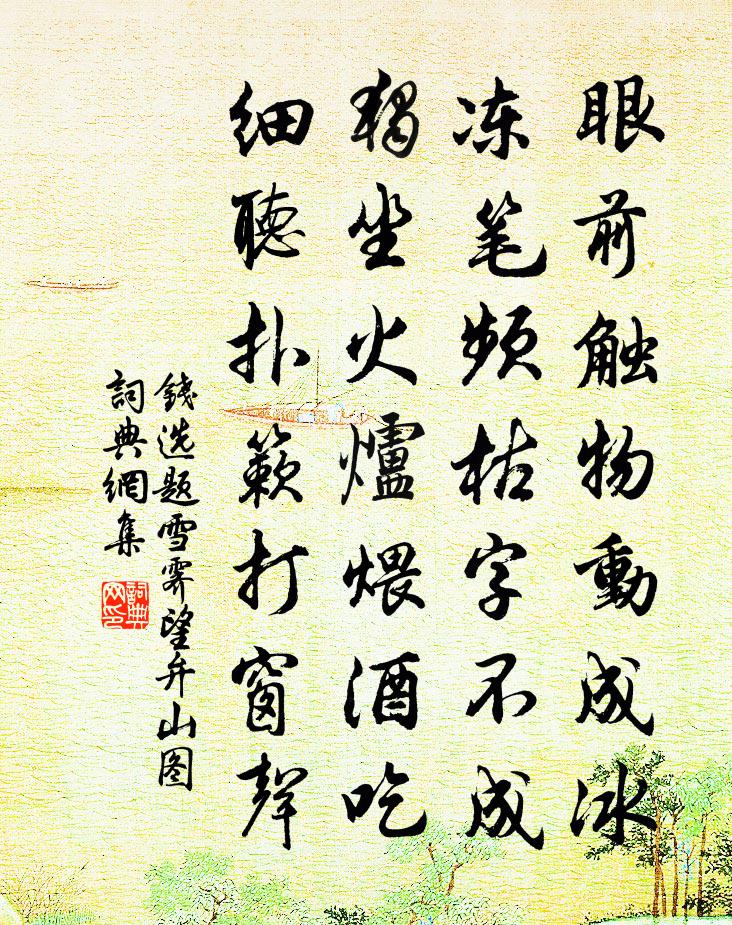 眼前触物動成冰
冻笔频枯字不成
独坐火爐煨酒吃
细聽扑簌打窗聲
錢选题雪霁望弁山图
詞典網集
詞典
网印